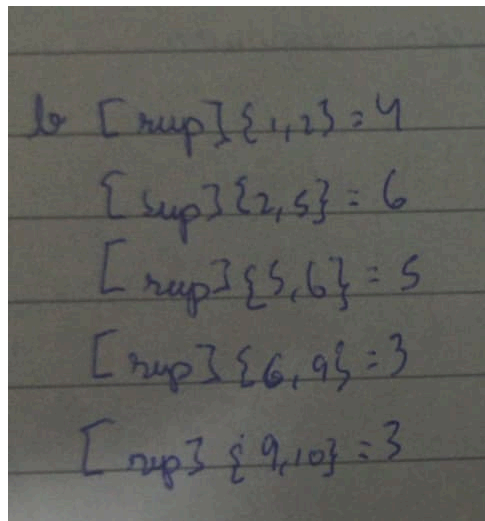 b [sup]{1,2} = 4
[sup]{2,5} = 6
[sup]{5,6} = 5
[sup]{6,9} = 3
[sup]{9,10} = 3